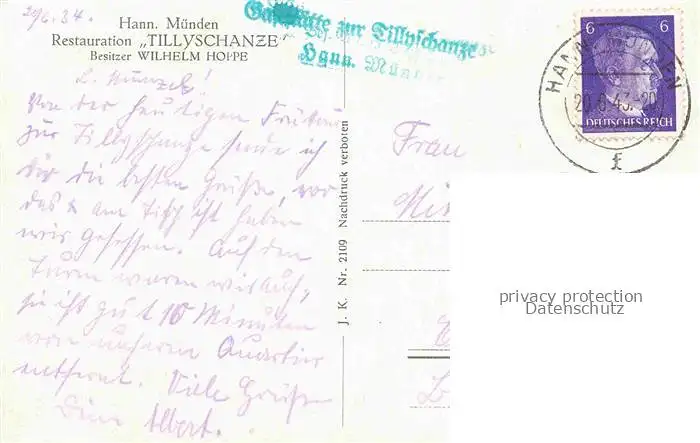 29.6.34.
Hann. Münden
Restauration „TILLYSCHANZE"
Besitzer WILHELM HOPPE
Gaststätte zur Tillyschanze
Hann. Münden
6 6
DEUTSCHES REICH
HANN. MÜNDEN
20.6.43.20
f
L. Munzel!
Von der heutigen
zur Tillyschanze sende ich
Dir die besten Grüße, wo
das x am Tisch ist haben
wir gesessen. Auf dem
Turm waren wir auch,
sie ist gut 10 Minuten
von unserem Quartier
entfernt. Viele Grüße
Dein Albert.
J. K. Nr. 2109 Nachdruck verboten
Frau
privacy protection
Datenschutz